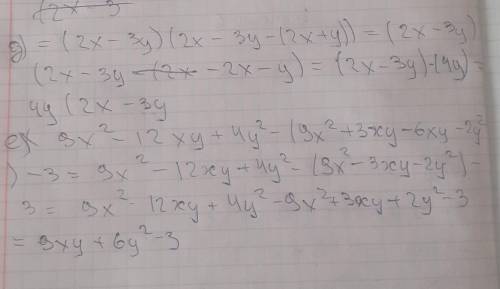 (2x-3
g) = (2x-3y)(2x-3y-(2x+y)) = (2x-3y)
(2x-3y -2x-y) = (2x-3y)·(4y) =
4y(2x-3y
е) 9x²-12xy+4y²-(9x²+3xy-6xy-2y²
)-3 = 9x²-12xy+4y²-(9x²-3xy-2y²)-
3 = 9x²-12xy+4y²-9x²+3xy+2y²-3
= 9xy+6y²-3